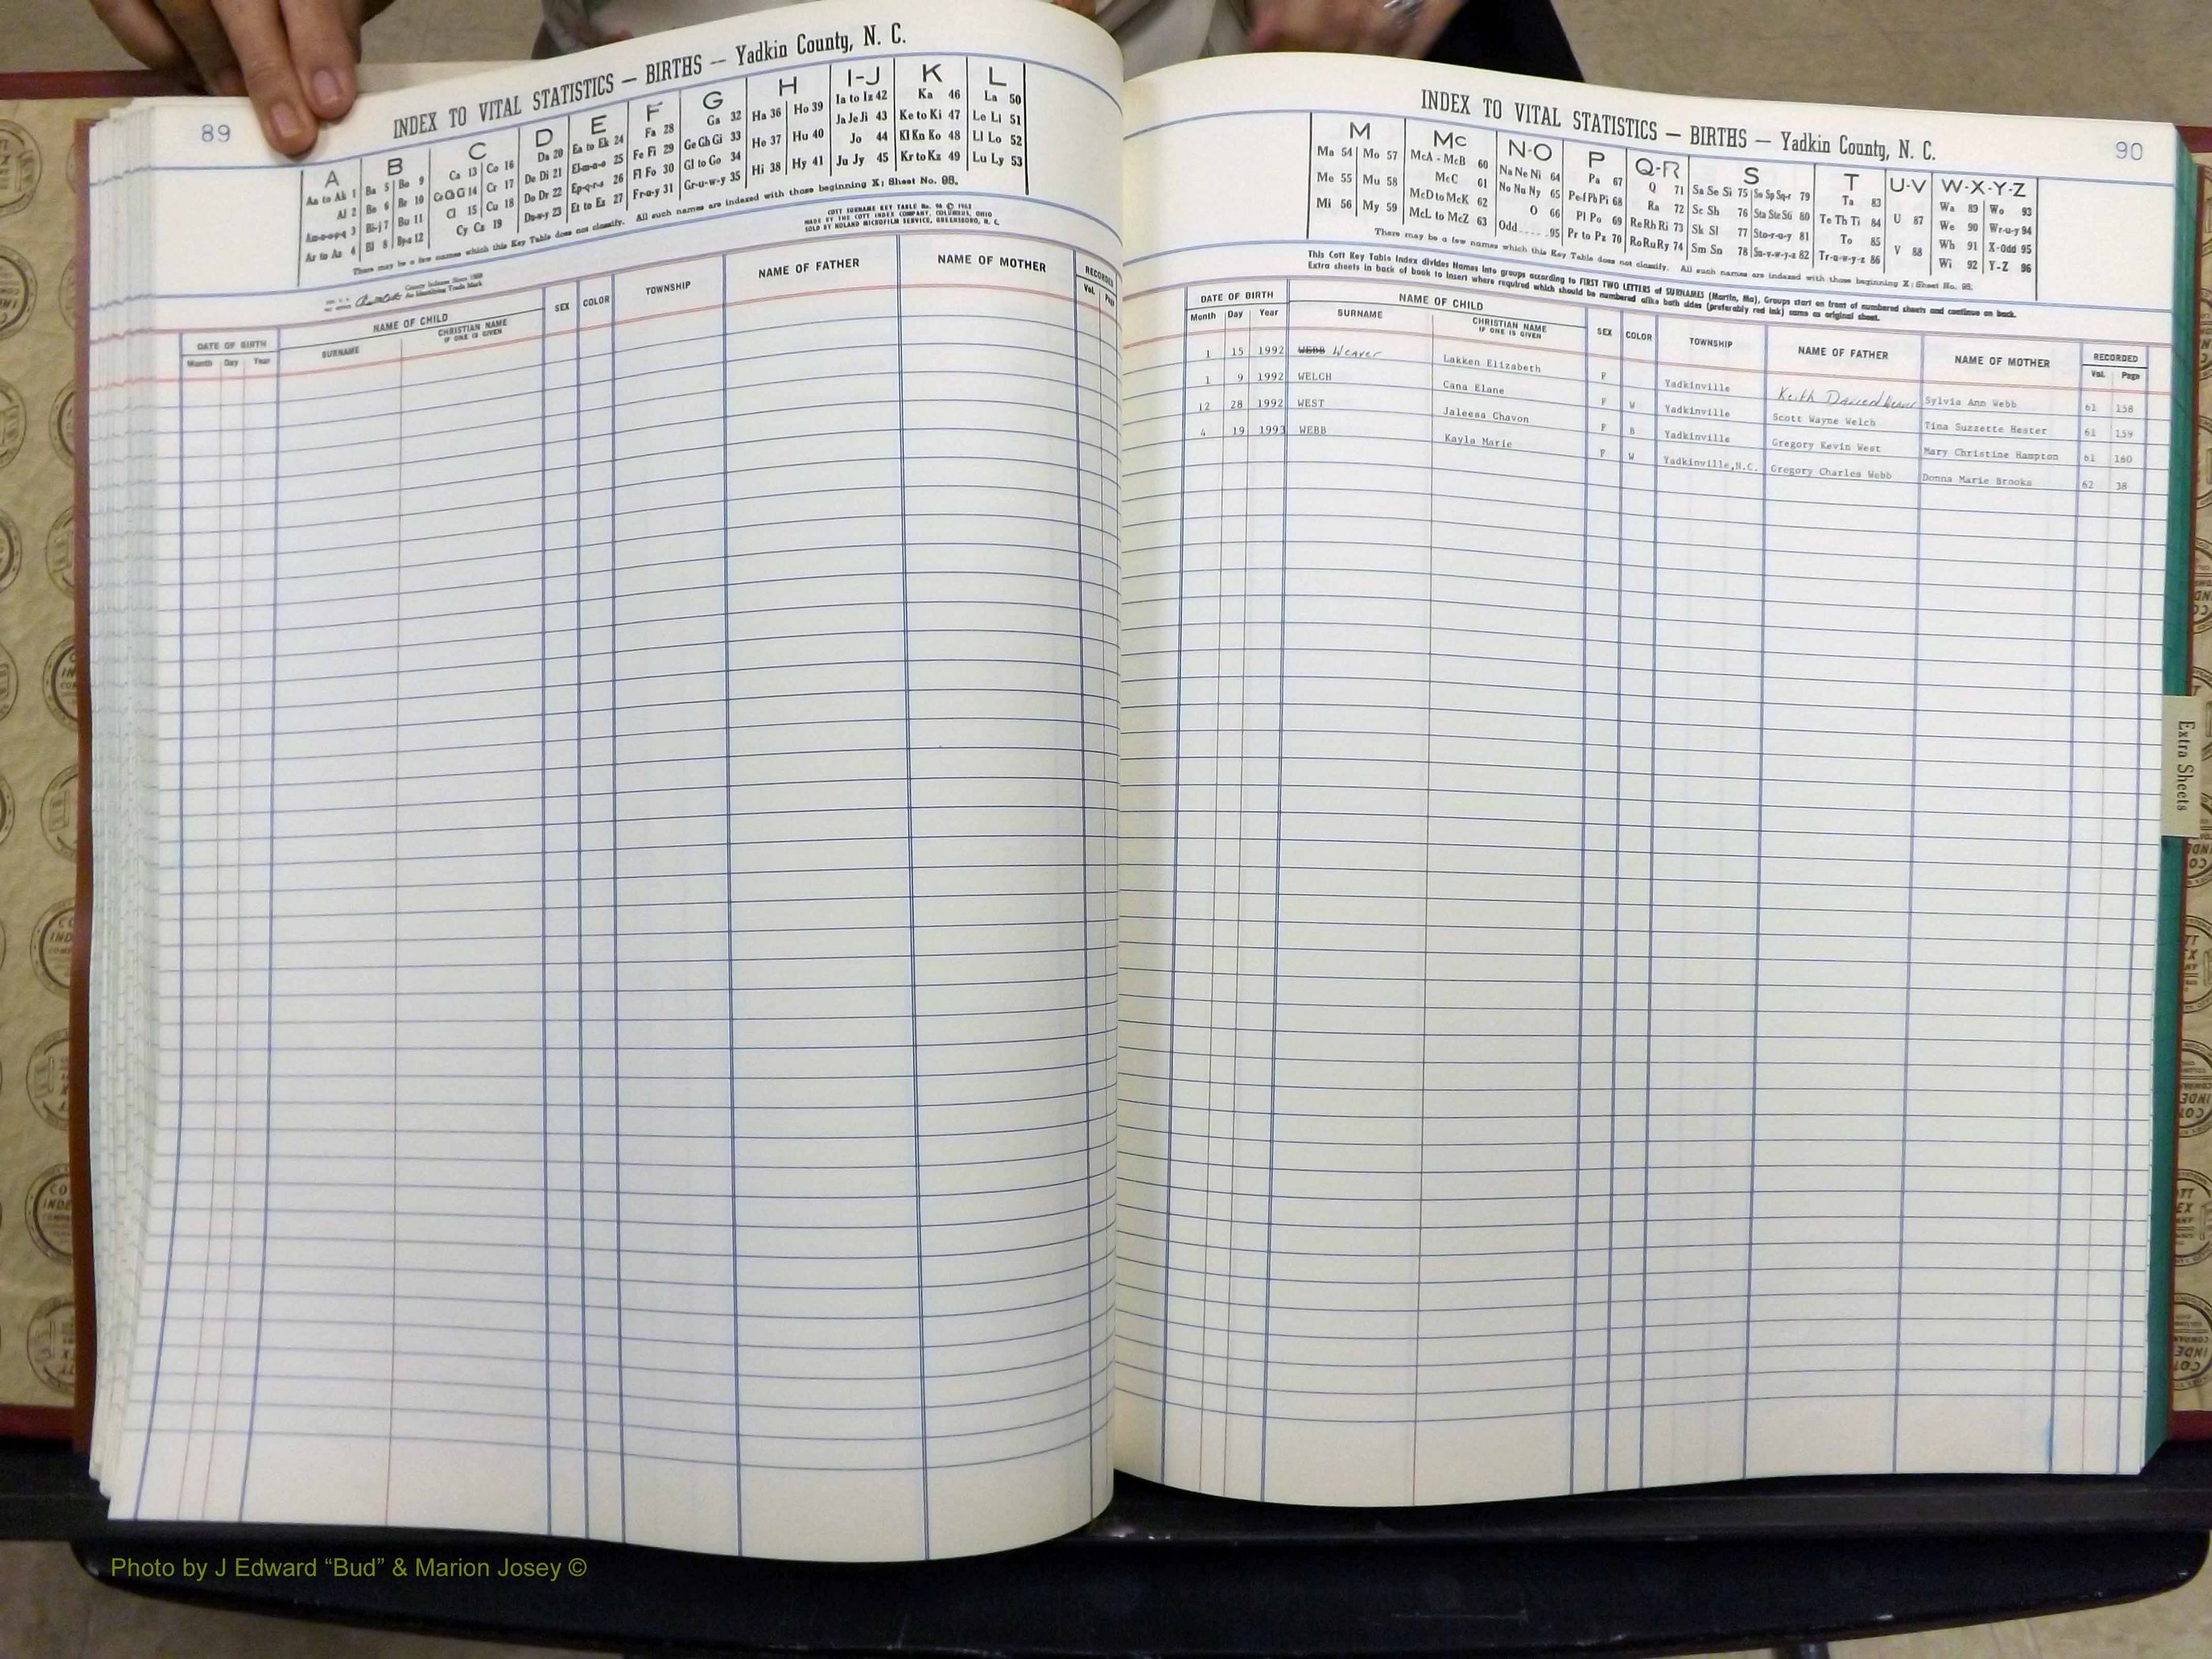 89
INDEX TO VITAL STATISTICS — BIRTHS — Yadkin County, N. C.
A B C D E F G H I-J K L
Aa to Ak 1 Ba 5 Be 9 Ca 13 Co 16 Da 20 Ea to Ek 24 Fa 28 Ga 32 Ha 36 Ho 39 Ia to Iz 42 Ka 46 La 50
Al 2 Be 6 Br 10 Ce Ch Ci 14 Cr 17 De Di 21 El-m-n-o 25 Fe Fi 29 Ge Gh Gi 33 He 37 Hu 40 Ja Je Ji 43 Ke to Ki 47 Le Li 51
Am-n-o-p-q 3 Bi-j 7 Bu 11 Cl 15 Cu 18 Do Dr 22 Ep-q-r-s 26 Fl Fo 30 Gl to Go 34 Hi 38 Hy 41 Jo 44 Kl Kn Ko 48 Ll Lo 52
Ar to Az 4 Bl 8 By-z 12 Cy Cz 19 Du-w-y 23 Et to Ez 27 Fr-u-y 31 Gr-u-w-y 35 Ju Jy 45 Kr to Kz 49 Lu Ly 53
There may be a few names which this Key Table does not classify. All such names are indexed with those beginning X; Sheet No. 98.
COTT SURNAME KEY TABLE No. 96 © 1962
MADE BY THE COTT INDEX COMPANY, COLUMBUS, OHIO
SOLD BY NOLAND MICROFILM SERVICE, GREENSBORO, N. C.
County Indexes Since 1888
An Identifying Trade Mark
DATE OF BIRTH NAME OF CHILD SEX COLOR TOWNSHIP NAME OF FATHER NAME OF MOTHER RECORDED
Month Day Year SURNAME CHRISTIAN NAME IF ONE IS GIVEN Vol. Page
INDEX TO VITAL STATISTICS — BIRTHS — Yadkin County, N. C.
90
M Mc N-O P Q-R S T U-V W-X-Y-Z
Ma 54 Mo 57 McA - McB 60 Na Ne Ni 64 Pa 67 Q 71 Sa Se Si 75 So Sp Sq-r 79 Ta 83 U 87 Wa 89 Wo 93
Me 55 Mu 58 McC 61 No Nu Ny 65 Pe-f Ph Pi 68 Ra 72 Sc Sh 76 Sta Ste Sti 80 Te Th Ti 84 V 88 We 90 Wr-u-y 94
Mi 56 My 59 McD to McK 62 O 66 Pl Po 69 Re Rh Ri 73 Sk Sl 77 Sto-r-u-y 81 To 85 Wh 91 X-Odd 95
McL to McZ 63 Odd.....95 Pr to Pz 70 Ro Ru Ry 74 Sm Sn 78 Su-v-w-y-z 82 Tr-u-w-y-z 86 Wi 92 Y-Z 96
There may be a few names which this Key Table does not classify. All such names are indexed with those beginning X; Sheet No. 98.
This Cott Key Table Index divides Names into groups according to FIRST TWO LETTERS of SURNAMES (Martin, Ma), Groups start on front of numbered sheets and continue on back.
Extra sheets in back of book to insert where required which should be numbered alike both sides (preferably red ink) same as original sheet.
DATE OF BIRTH NAME OF CHILD SEX COLOR TOWNSHIP NAME OF FATHER NAME OF MOTHER RECORDED
Month Day Year SURNAME CHRISTIAN NAME IF ONE IS GIVEN Vol. Page
1 15 1992 WEBB Weaver Lakken Elizabeth F Yadkinville Keith Sylvia Ann Webb 61 158
1 9 1992 WELCH Cana Elane F W Yadkinville Scott Wayne Welch Tina Suzzette Hester 61 159
12 28 1992 WEST Jaleesa Chavon F B Yadkinville Gregory Kevin West Mary Christine Hampton 61 160
4 19 1993 WEBB Kayla Marie F W Yadkinville,N.C. Gregory Charles Webb Donna Marie Brooks 62 38
Extra Sheets
Photo by J Edward “Bud” & Marion Josey ©